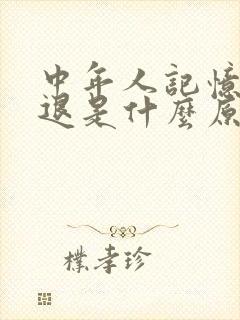 中年人記憶
退是什麼原
樸孝珍